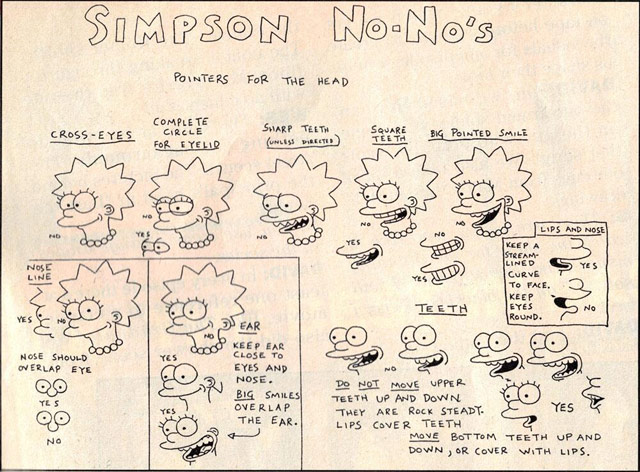 SIMPSON NO-NO'S
POINTERS FOR THE HEAD
CROSS-EYES
NO
COMPLETE
CIRCLE
FOR EYELID
NO
YES
SHARP TEETH
(UNLESS DIRECTED)
NO
SQUARE
TEETH
NO
YES
BIG POINTED SMILE
NO
NO
YES
LIPS AND NOSE
KEEP A
STREAM-
LINED
CURVE
TO FACE.
KEEP
EYES
ROUND.
YES
NO
NOSE
LINE
YES
NO
NOSE SHOULD
OVERLAP EYE
YES
NO
NO
EAR
KEEP EAR
CLOSE TO
EYES AND
NOSE.
BIG SMILES
OVERLAP
THE EAR.
YES
YES
TEETH
NO
DO NOT MOVE UPPER
TEETH UP AND DOWN
THEY ARE ROCK STEADY.
LIPS COVER TEETH
YES
MOVE BOTTOM TEETH UP AND
DOWN, OR COVER WITH LIPS.